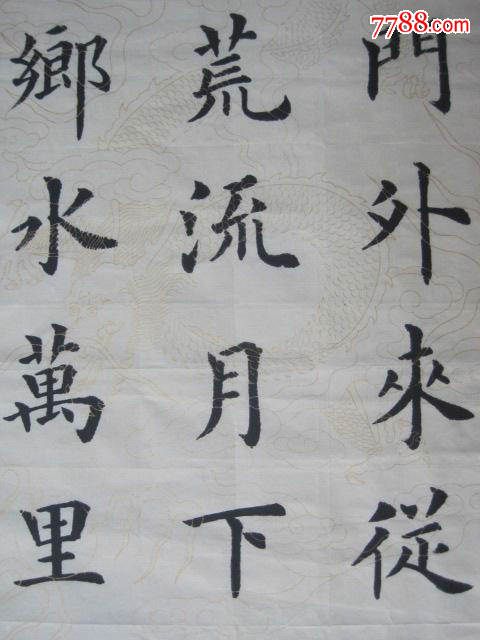 7788.com
門外來從
荒流月下
鄉水萬里